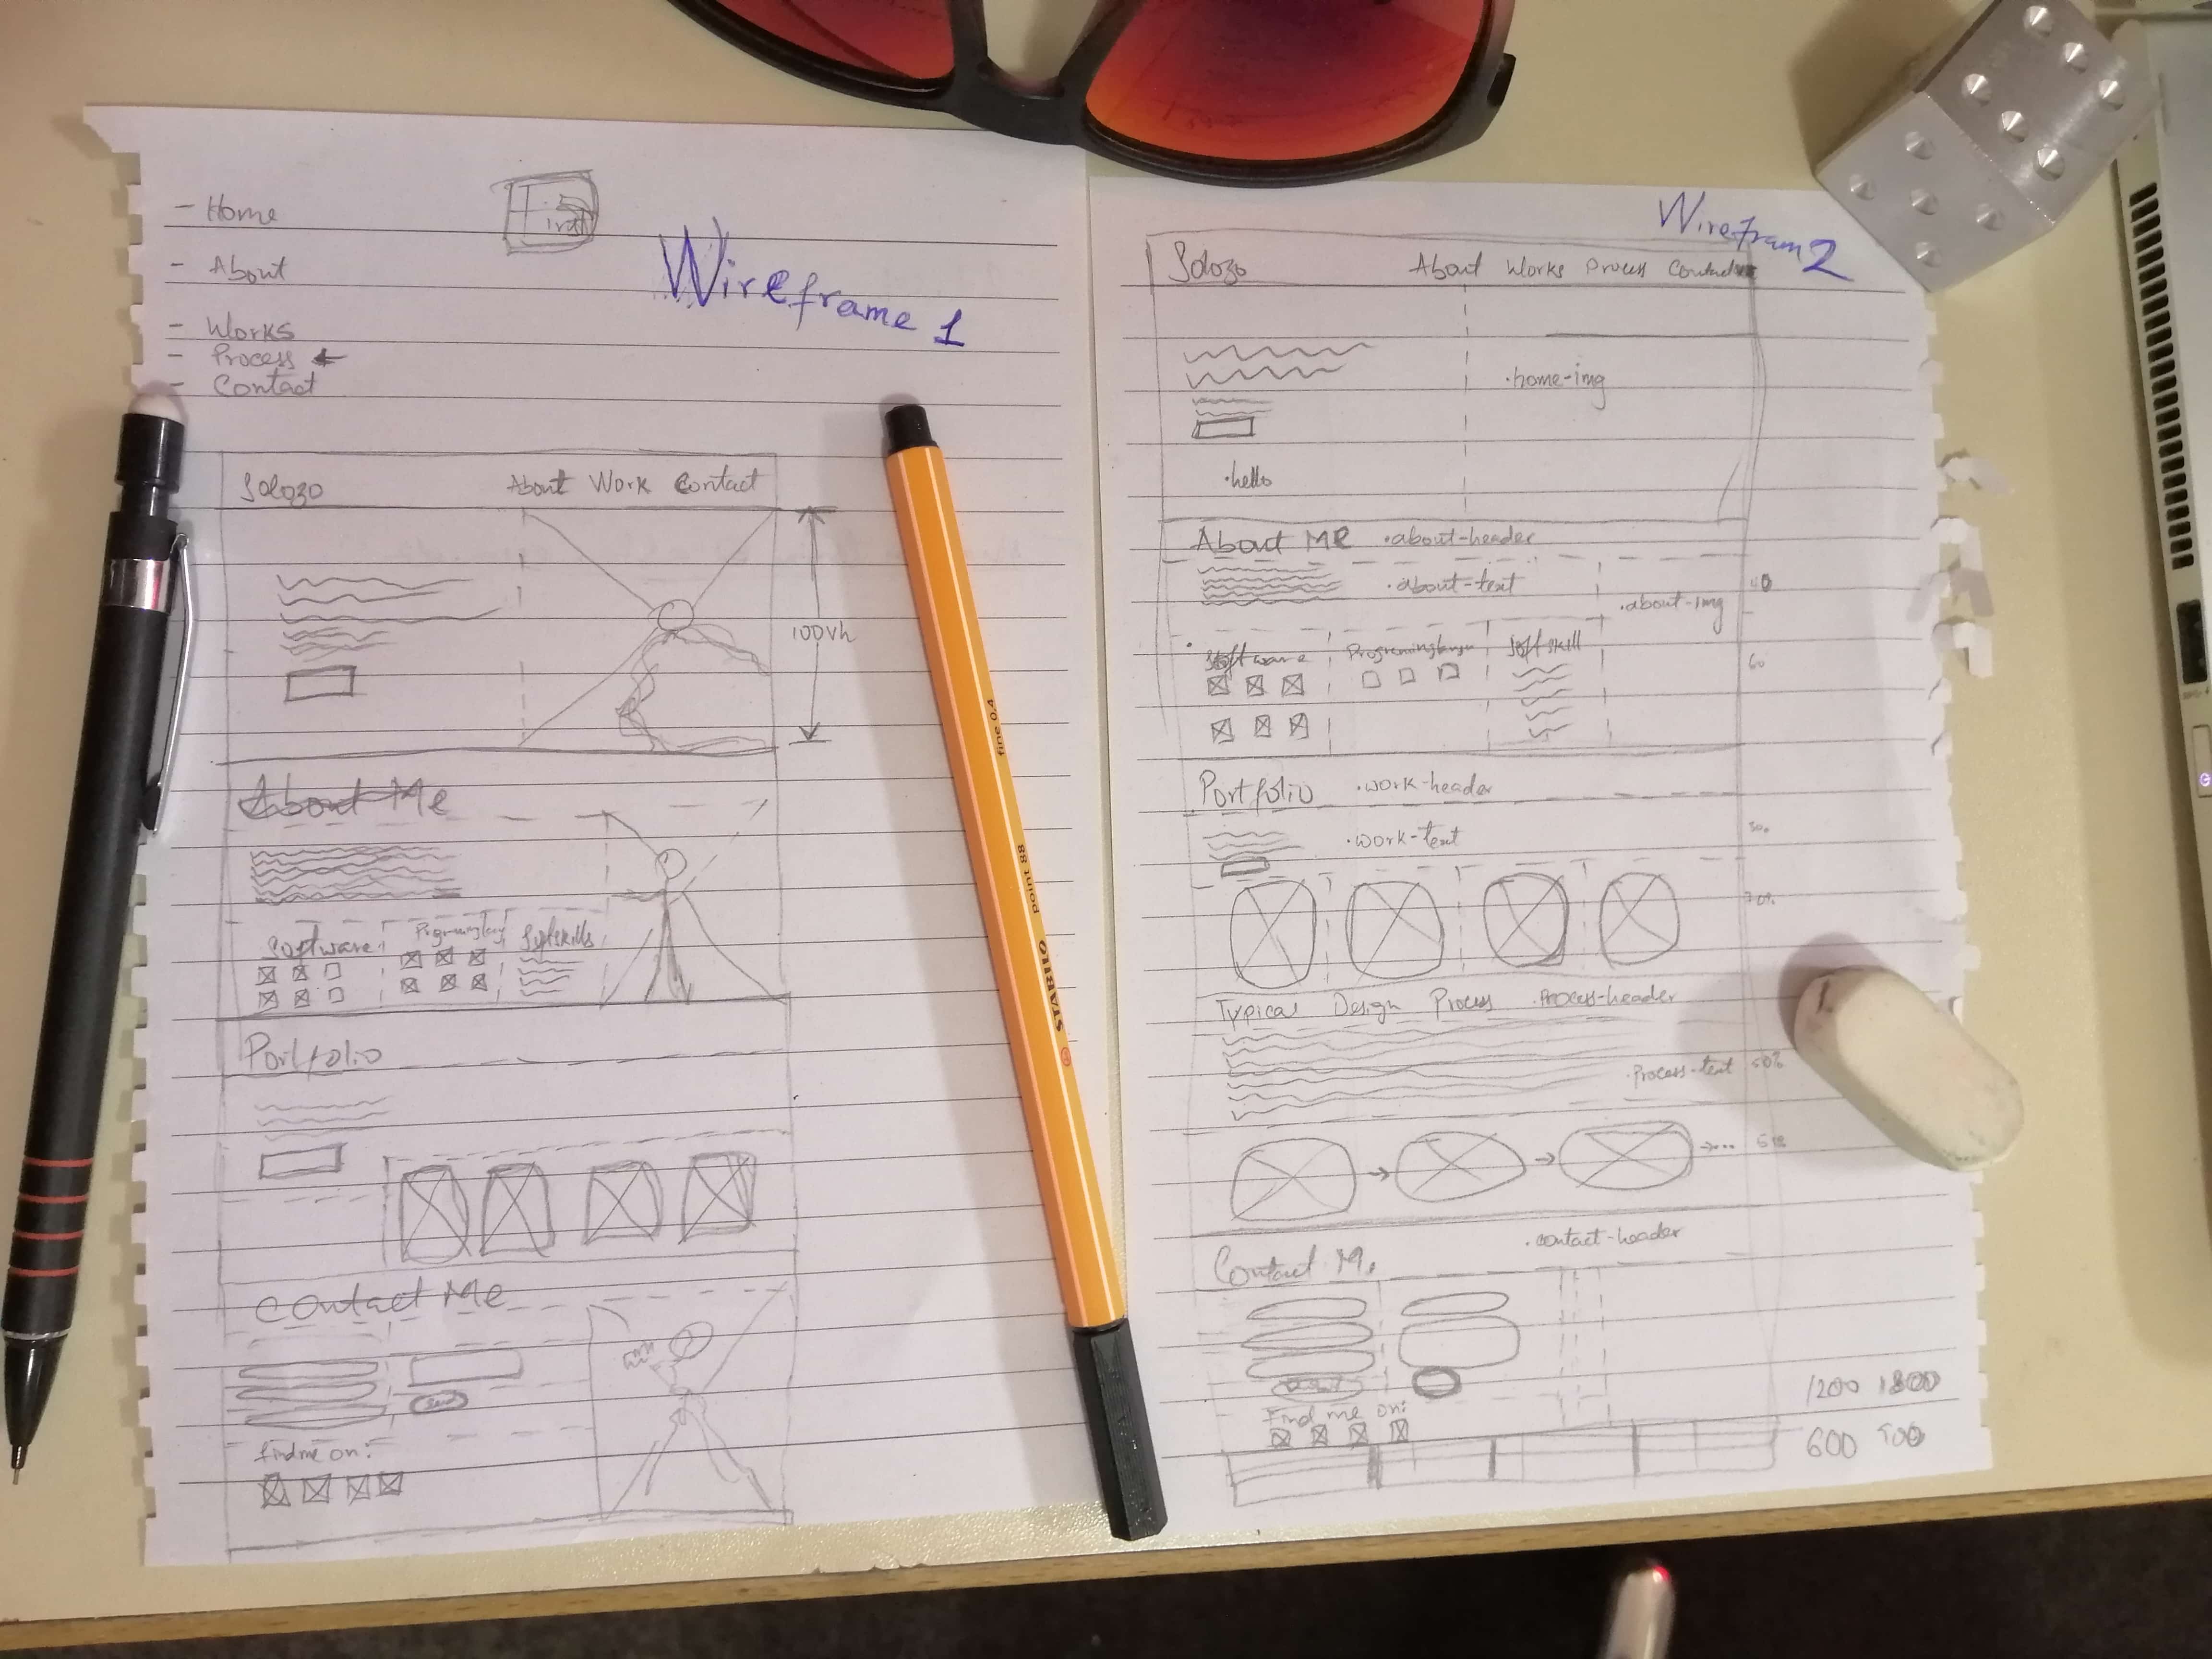 - Home
- About
- Works
- Process
- Contact
Wireframe 1
Solozo
About Work Contact
100vh
About Me
Software
Softskills
Portfolio
Contact Me
Send
find me on:
fine 0.4
point 88
STABILO
Wirefram 2
Solozo
About Works Process Contact
.home-img
.hello
About Me .about-header
.about-text
.about-img
40
60
Software
Soft skill
Portfolio .work-header
.work-text
30%
70%
Typical Design Process .Process-header
.Process-text
50%
.contact-header
Contact M.
Find me on:
1200 1800
600 900